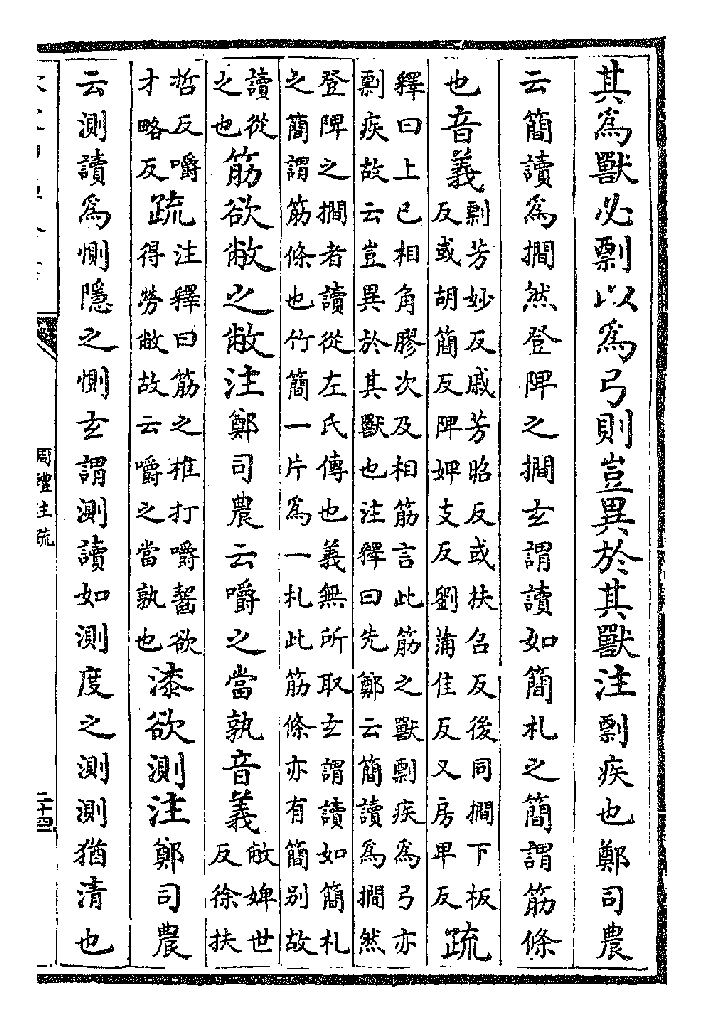 其爲獸必剽以爲弓則豈異於其獸注剽疾也鄭司農
云簡讀爲撊然登陴之撊玄謂讀如簡札之簡謂筋條
也音義剽芳妙反戚芳昭反或扶召反後同撊下板反或胡簡反陴婢支反劉蒲佳反又房卑反疏
釋曰上已相角膠次及相筋言此筋之獸剽疾爲弓亦
剽疾故云豈異於其獸也注釋曰先鄭云簡讀爲撊然
登陴之撊者讀從左氏傳也義無所取玄謂讀如簡札
之簡謂筋條也竹簡一片爲一札此筋條亦有簡別故
讀從之也筋欲敝之敝注鄭司農云嚼之當孰音義敝婢世反徐扶
哲反嚼才略反疏注釋曰筋之椎打嚼齧欲得勞敝故云嚼之當孰也漆欲測注鄭司農
云測讀爲惻隱之惻玄謂測讀如測度之測測猶清也
周禮注疏
二十四